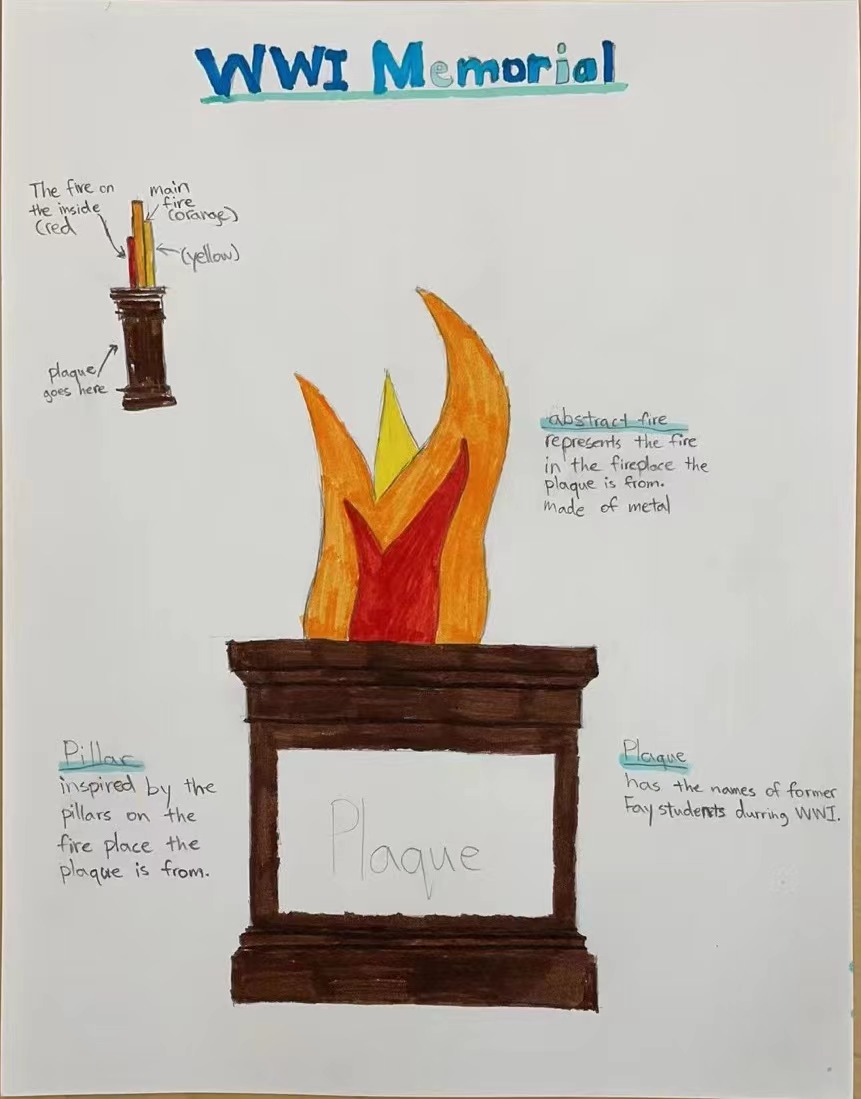 WWI Memorial
The fire on
the inside
(red
main
fire
(orange)
(yellow)
plaque
goes here
abstract fire
represents the fire
in the fireplace the
plaque is from.
made of metal
Pillar
inspired by the
pillars on the
fire place the
plaque is from.
Plaque
has the names of former
Fay students durring WWI.
Plaque